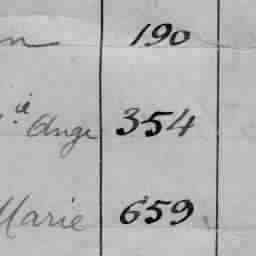 190
Ange 354
Marie 659